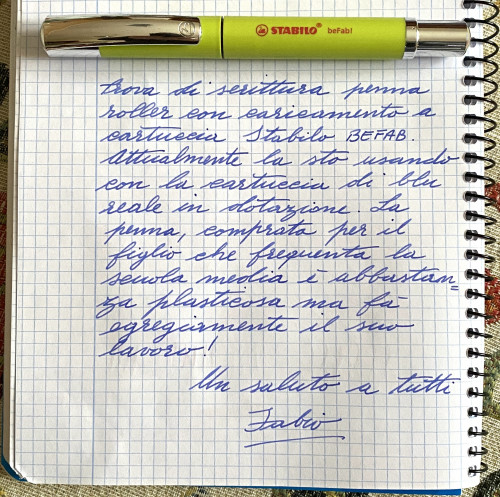 STABILO beFab!
trova di scrittura penna
roller con caricamento a
cartuccia Stabilo BEFAB.
Attualmente la sto usando
con la cartuccia di blu
reale in dotazione. La
penna, comprata per il
figlio che frequenta la
scuola media è abbastan=
za plasticosa ma fà
egregiamente il suo
lavoro!
Un saluto a tutti
Fabio